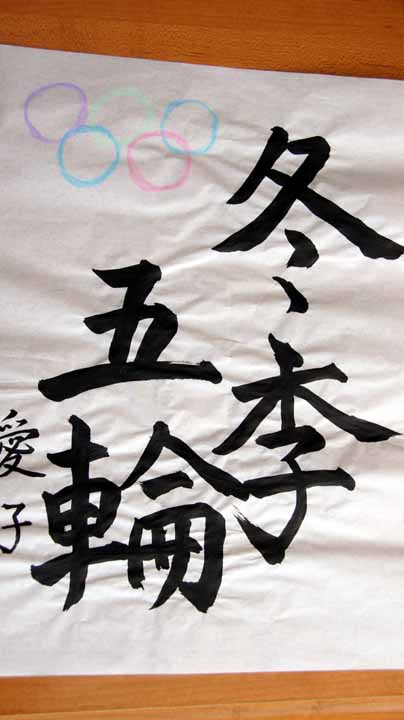 冬季
五輪
愛子